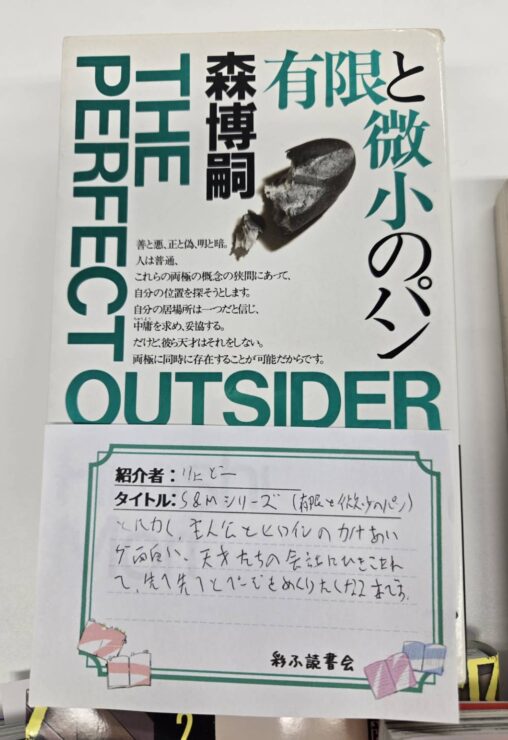 有限と微小のパン
森博嗣
THE
PERFECT
OUTSIDER
善と悪、正と偽、明と暗。
人は普通、
これらの両極の概念の狭間にあって、
自分の位置を探そうとします。
自分の居場所は一つだと信じ、
中庸を求め、妥協する。
だけど、彼ら天才はそれをしない。
両極に同時に存在することが可能だからです。
紹介者:
タイトル:S&Mシリーズ(有限と微小のパン)
主人公とヒロインのかけあい
が面白い、天才たちの会話にひきこまれ
て、先へ先へとページをめくりたくなる
彩ふ読書会
2
17